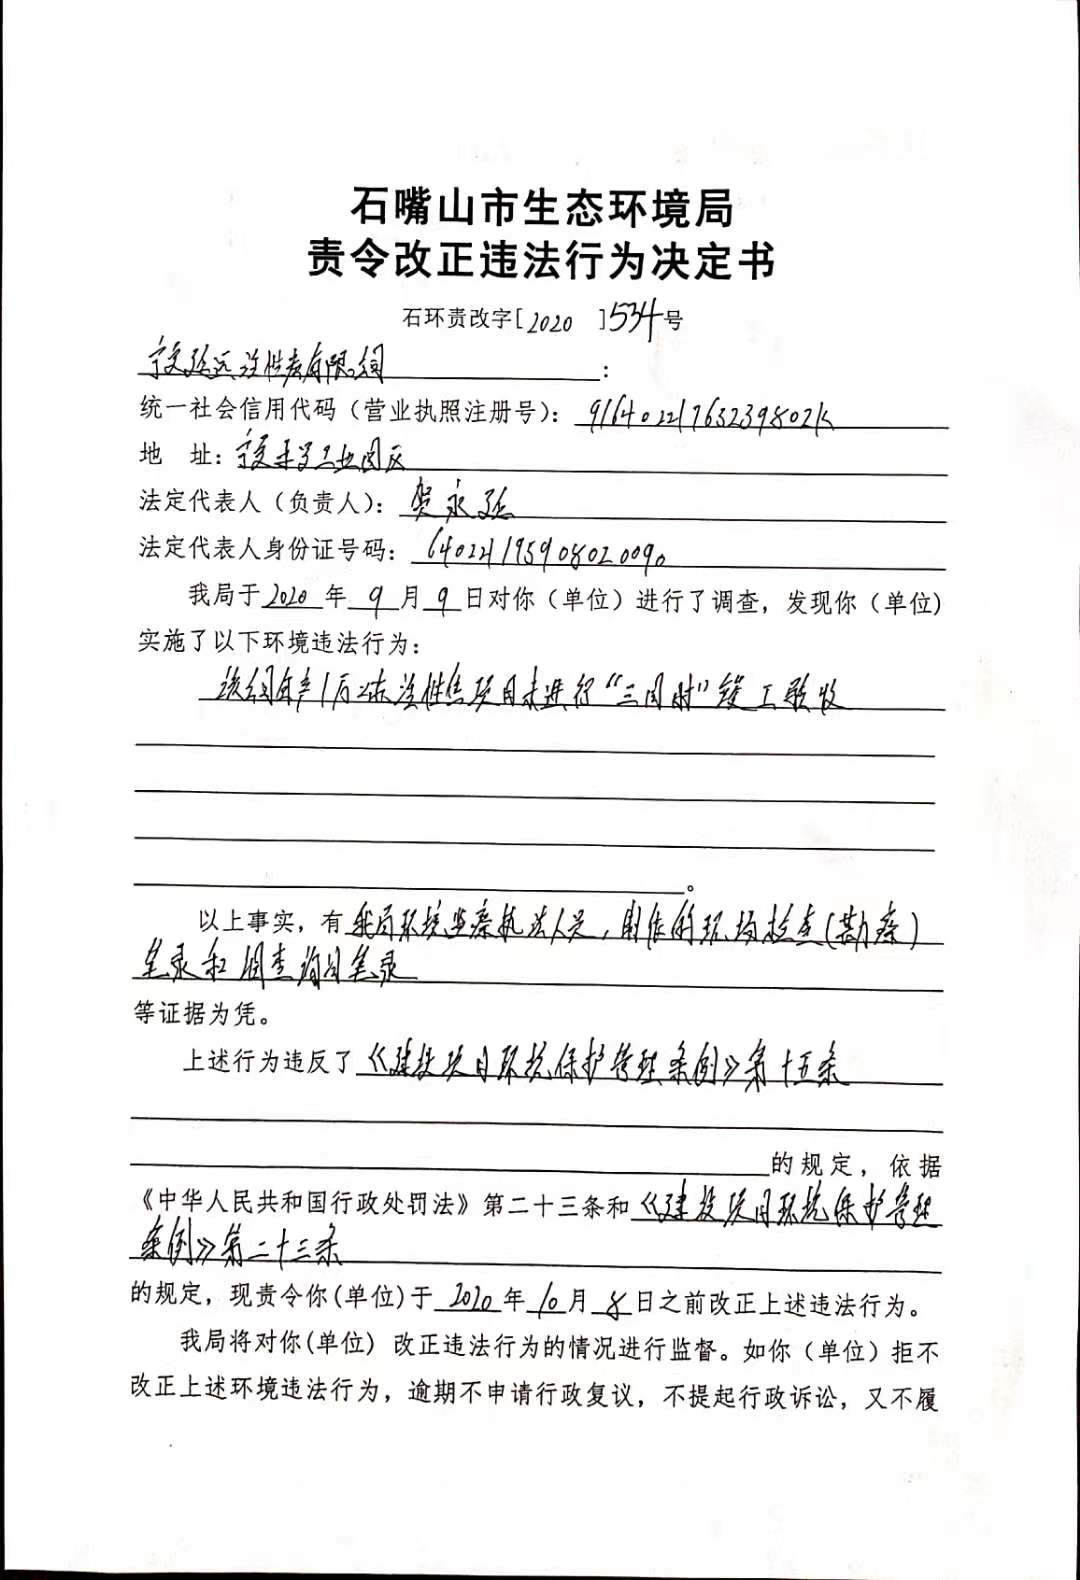 石嘴山市生态环境局
责令改正违法行为决定书
石环责改字[2020]534号
宁夏延远活性炭有限公司：
统一社会信用代码（营业执照注册号）：91640221763239802K
地 址：宁夏平罗工业园区
法定代表人（负责人）：贺永延
法定代表人身份证号码：640221195908020090
我局于2020年9月9日对你（单位）进行了调查，发现你（单位）
实施了以下环境违法行为：
该公司年产1万吨活性焦项目未进行“三同时”竣工验收
。
以上事实，有我局环境监察执法人员，制作的现场检查（勘察）
笔录和调查询问笔录
等证据为凭。
上述行为违反了《建设项目环境保护管理条例》第十五条
的规定，依据
《中华人民共和国行政处罚法》第二十三条和《建设项目环境保护管理
条例》第二十三条
的规定，现责令你(单位)于2020年10月8日之前改正上述违法行为。
我局将对你(单位) 改正违法行为的情况进行监督。如你（单位）拒不
改正上述环境违法行为，逾期不申请行政复议，不提起行政诉讼，又不履